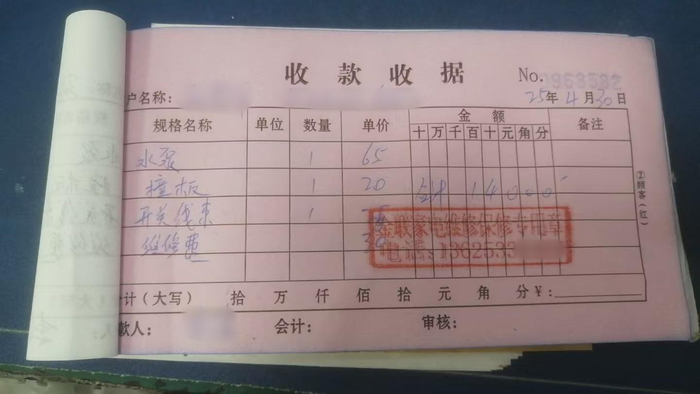 收款收据
No. 0963532
户名称：
25年4月30日
规格名称 单位 数量 单价 金额 备注
十 万 千 百 十 元 角 分
水泵 1 65
撞板 1 20 140.00
开关线束 1
维修费 30
家电维修保修专用章
电话：1362533
计（大写） 拾 万 仟 佰 拾 元 角 分 ¥：
款人： 会计： 审核：
②顾客（红）